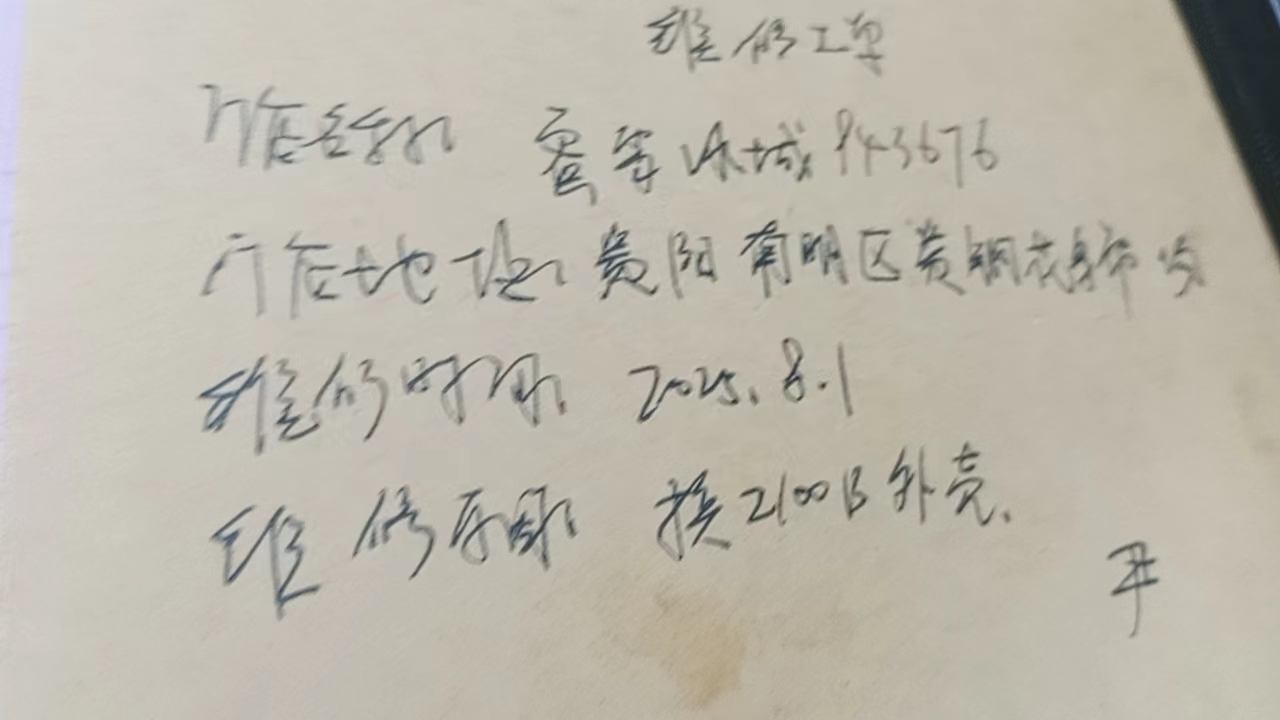 维修工单
门店名称: 蜜雪冰城843676
门店地址: 贵阳南明区贵钢花
维修时间: 2025.8.1
维修: 换2100B外壳.